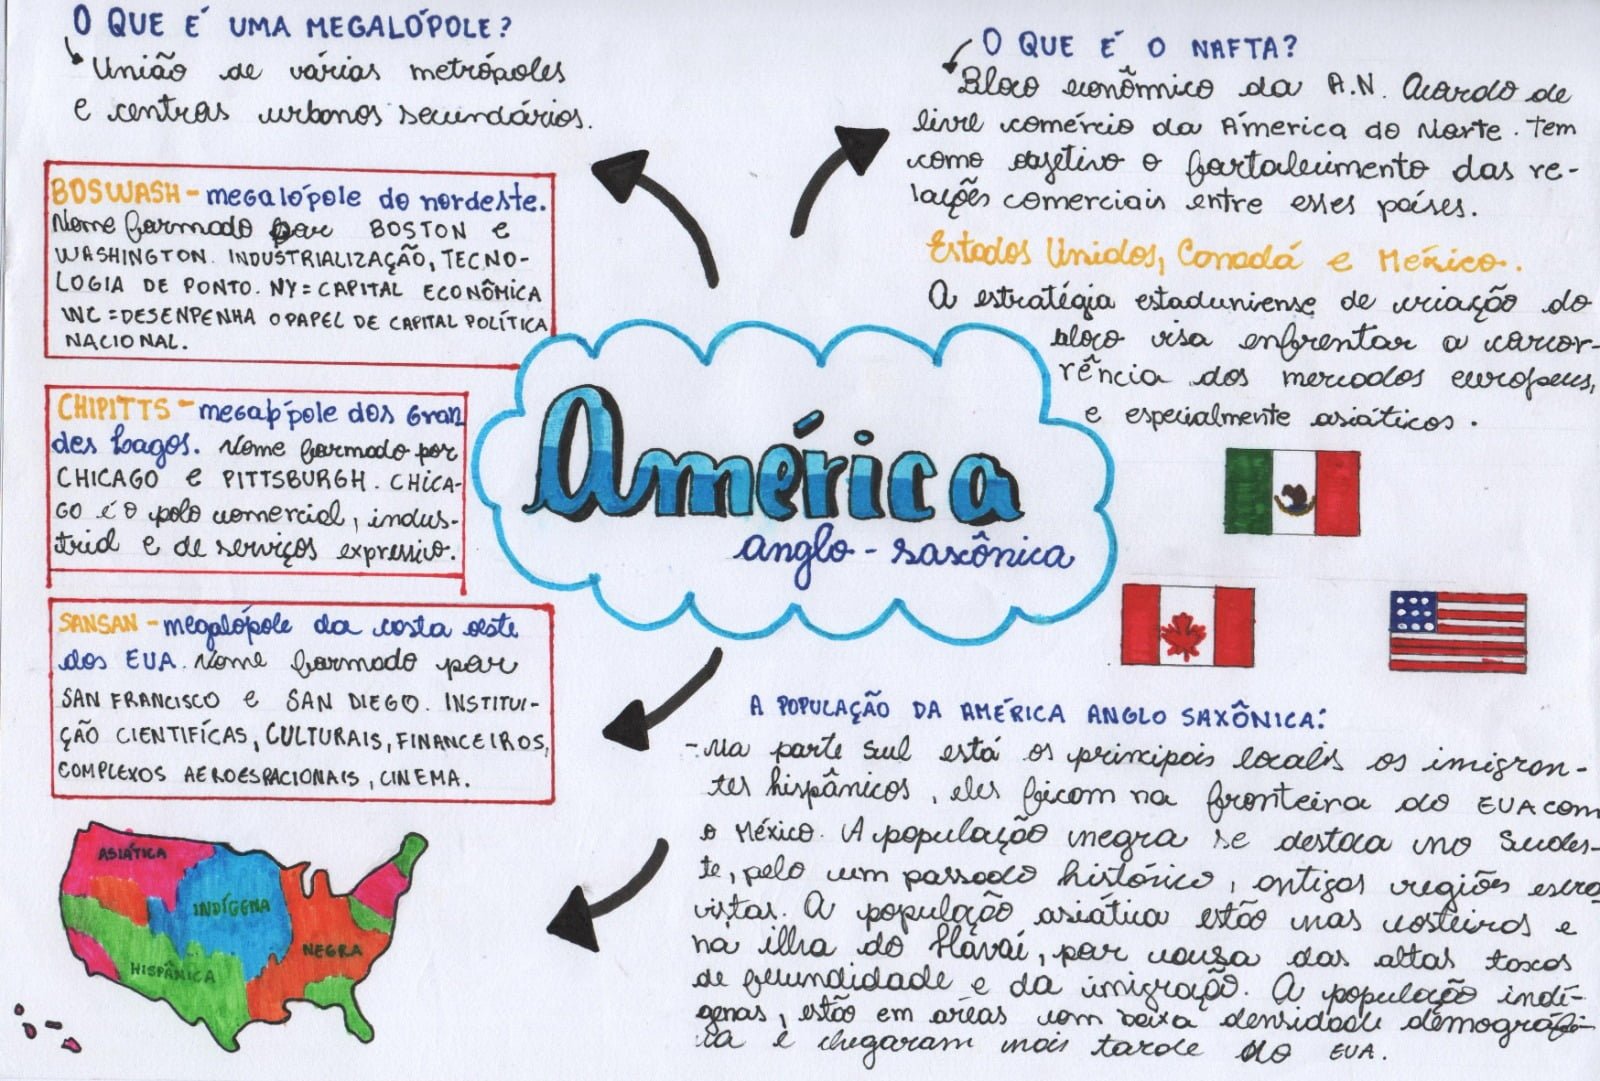 O QUE É UMA MEGALÓPOLE?
União de várias metrópoles
e centros urbanos secundários.
BOSWASH - megalópole do nordeste.
Nome formado por BOSTON e
WASHINGTON. INDUSTRIALIZAÇÃO, TECNO-
LOGIA DE PONTO. NY = CAPITAL ECONÔMICA
WC = DESENPENHA O PAPEL DE CAPITAL POLÍTICA
NACIONAL.
CHIPITTS - megalópole dos Gran
des Lagos. Nome formado por
CHICAGO e PITTSBURGH. CHICA-
GO é o polo comercial, indus-
trial e de serviços expressivo.
SANSAN - megalópole da costa oeste
dos EUA. Nome formado por
SAN FRANCISCO e SAN DIEGO. INSTITUI-
ÇÃO CIENTIFÍCAS, CULTURAIS, FINANCEIROS,
COMPLEXOS AEROESPACIONAIS, CINEMA.
ASIÁTICA
INDÍGENA
NEGRA
HISPÂNICA
América
anglo-saxônica
O QUE É O NAFTA?
Bloco econômico da A.N. Acordo de
livre comércio da Ámerica do Norte. Tem
como objetivo o fortalecimento das re-
lações comerciais entre esses países.
Estados Unidos, Canadá e México.
A estratégia estaduniense de criação do
bloco visa enfrentar a concor-
rência dos mercados europeus,
e especialmente asiáticos.
A POPULAÇÃO DA AMÉRICA ANGLO SAXÔNICA:
- Na parte sul está os principais locais os imigran-
tes hispânicos, eles ficam na fronteira do EUA com
o México. A população negra se destaca no Sudes-
te, pelo um passado histórico, antigas regiões escra
vistas. A população asiática estão nas costeiros e
na ilha do Havaí, por causa das altas taxas
de fecundidade e da imigração. A população indí-
genas, estão em aréas com baixa densidade demográfi-
ca e chegaram mais tarde ao EUA.